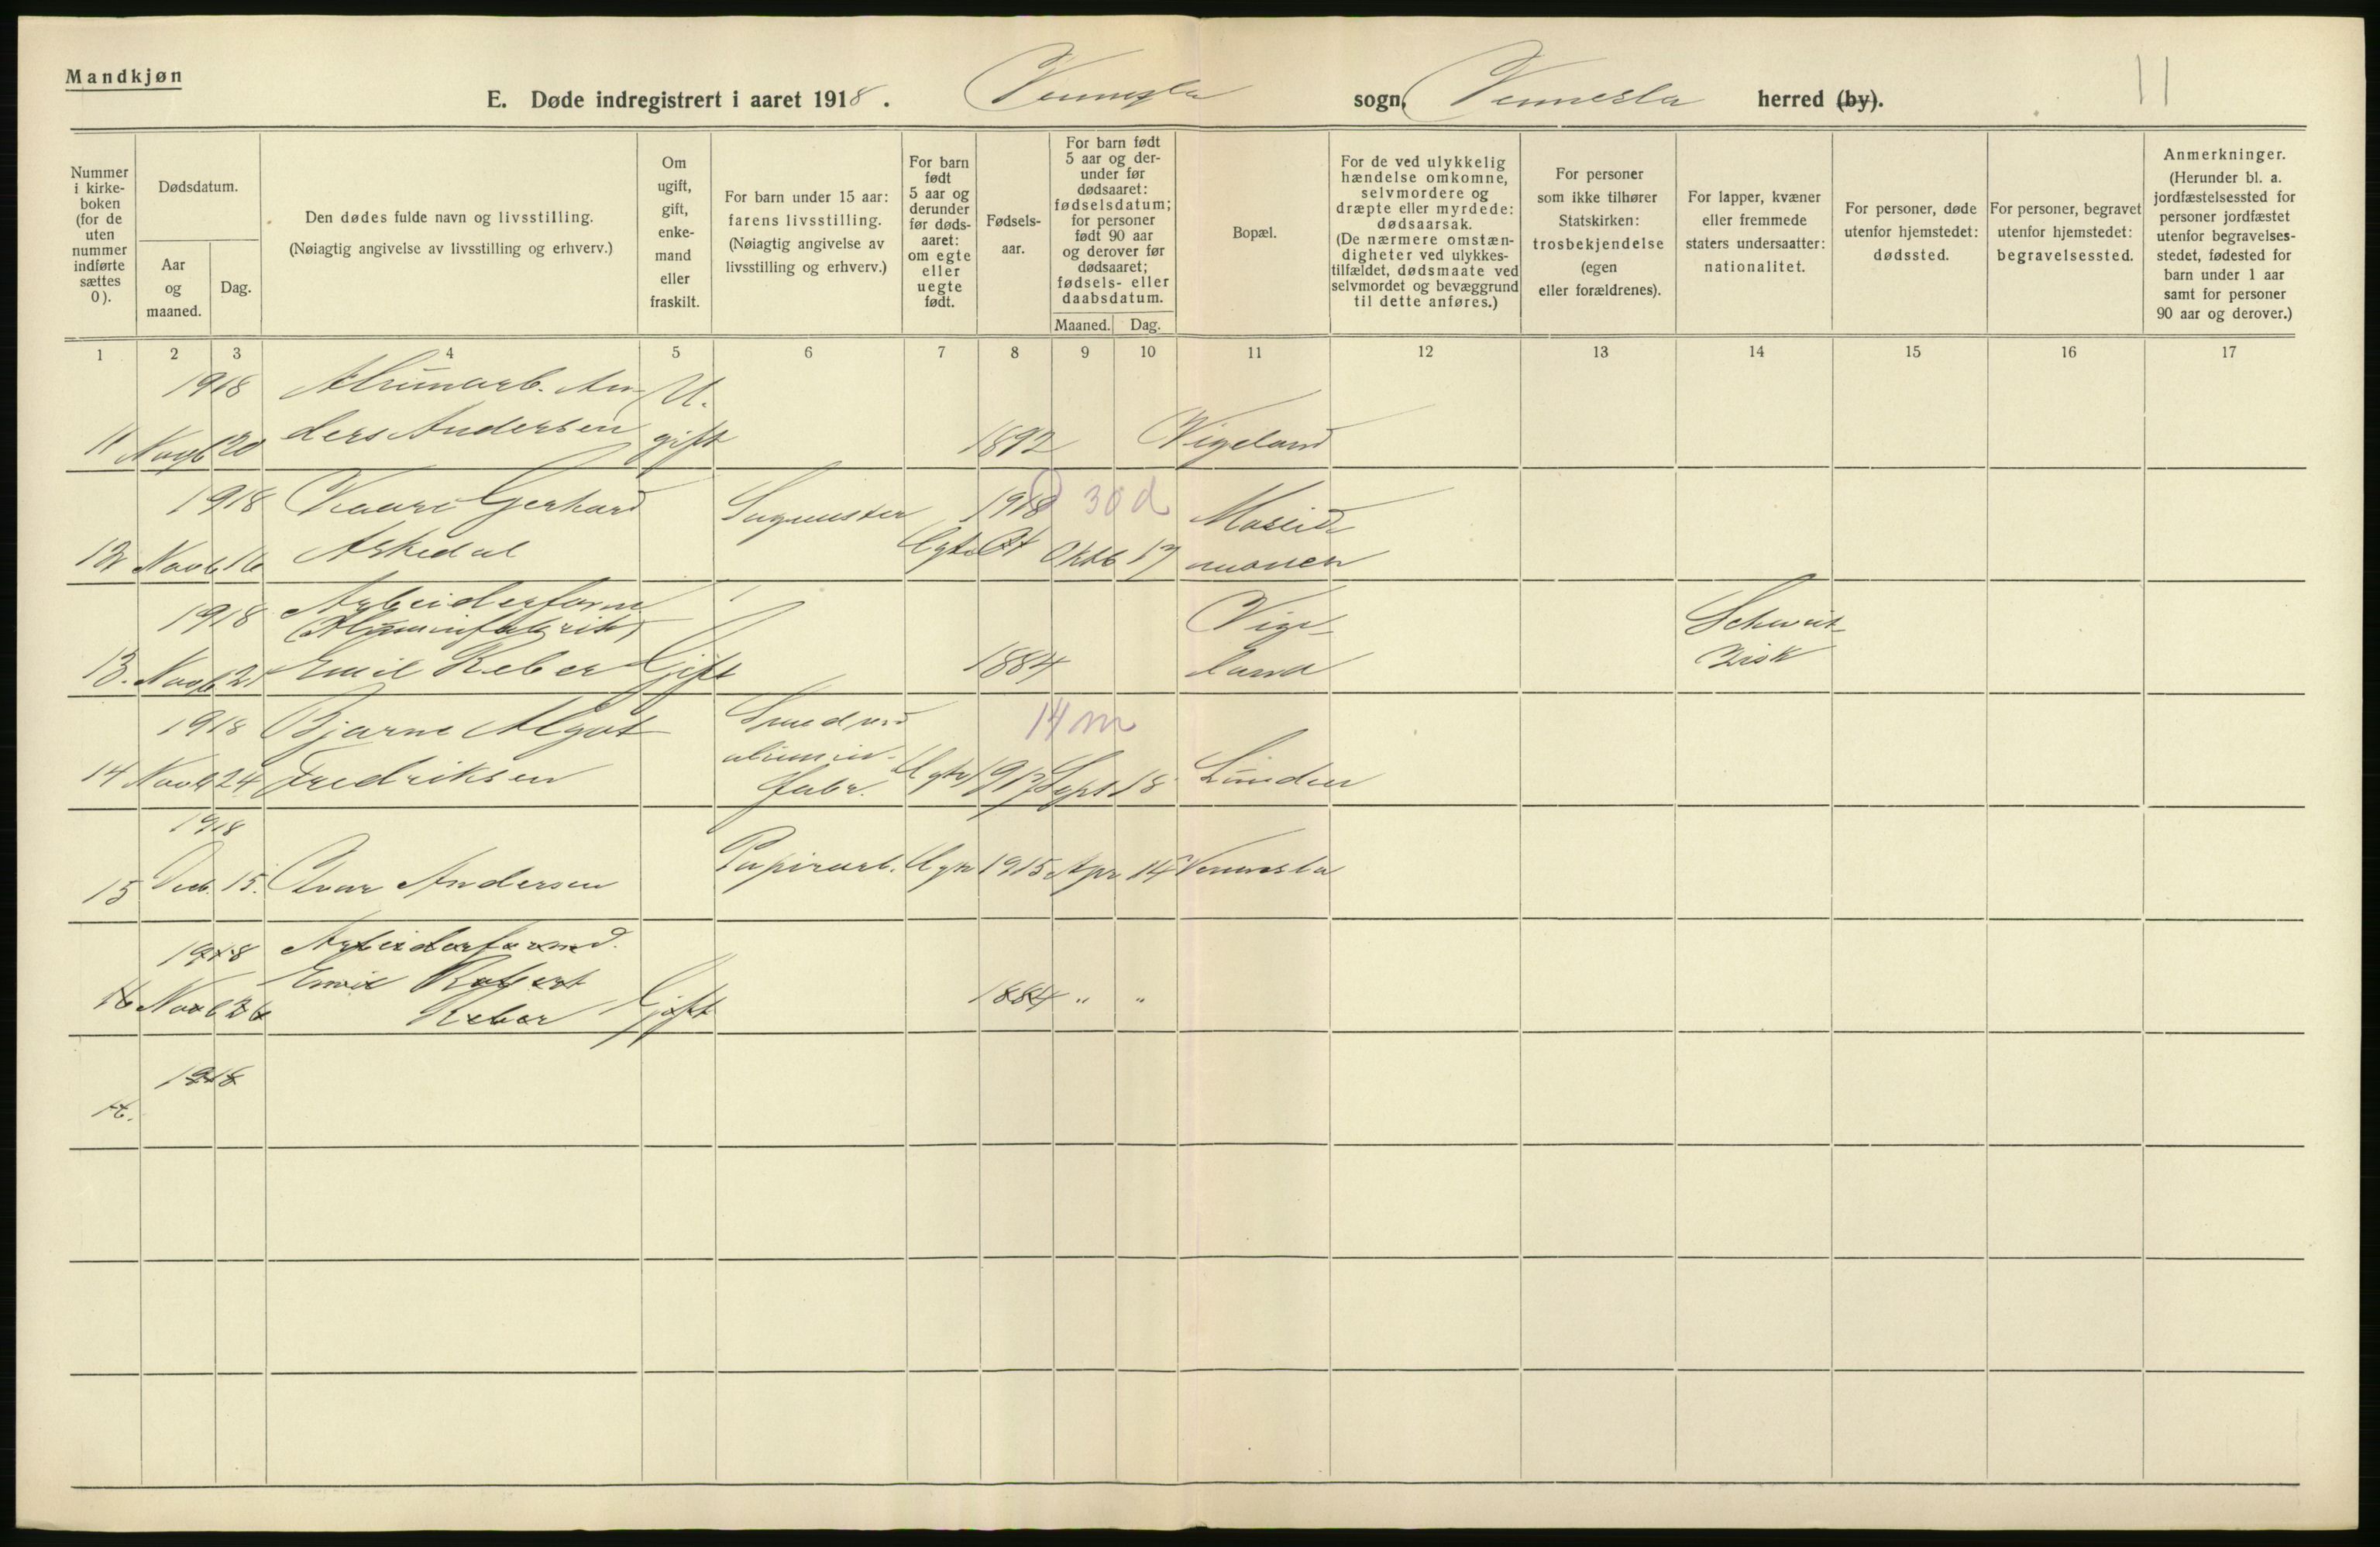 Mandkjøn
E. Døde indregistrert i aaret 1918. Vennesla sogn, Vennesla herred (by).
11
Nummer i kirkeboken (for de uten nummer indførte sættes 0).
Dødsdatum.
Aar og maaned.
Dag.
Den dødes fulde navn og livsstilling.
(Nøiagtig angivelse av livsstilling og erhverv.)
Om ugift, gift, enkemand eller fraskilt.
For barn under 15 aar: farens livsstilling. (Nøiagtig angivelse av livsstilling og erhverv.)
For barn født 5 aar og derunder før dødsaaret: om egte eller uegte født.
Fødselsaar.
For barn født 5 aar og derunder før dødsaaret: fødselsdatum; for personer født 90 aar og derover før dødsaaret; fødsels- eller daabsdatum.
Maaned. Dag.
Bopæl.
For de ved ulykkelig hændelse omkomne, selvmordere og dræpte eller myrdede: dødsaarsak. (De nærmere omstændigheter ved ulykkestilfældet, dødsmaate ved selvmordet og bevæggrund til dette anføres.)
For personer som ikke tilhører Statskirken: trosbekjendelse (egen eller forældrenes).
For lapper, kvæner eller fremmede staters undersaatter: nationalitet.
For personer, døde utenfor hjemstedet: dødssted.
For personer, begravet utenfor hjemstedet: begravelsessted.
Anmerkninger. (Herunder bl. a. jordfæstelsessted for personer jordfæstet utenfor begravelsesstedet, fødested for barn under 1 aar samt for personer 90 aar og derover.)
1 2 3 4 5 6 7 8 9 10 11 12 13 14 15 16 17
1918 Alumarb. An- U-
11 Novb 20 ders Andersen gift 1892 Vigeland
1918 Kaare Gerhard Sagmester 1918 30 d Moseid
12 Novb 16 Askedal Egte Oktb 17 moen
1918 Arbeiderform
(Aluminfabrik) Vige- Schweit-
13. Novb 21 Emil Reber Gift 1884 land zisk
1918 Bjarne Algot Smed ved 14 m
alumin-
14 Novb 24 Fredriksen fabr. Egte 1917 Sept 18 Lunden
1918
15 Deb. 15. Ivar Andersen Papirarb. Egte 1915 Apr 14 Vennesla
1918 Arbeiderformd.
Emil Robert
16 Novb 26 Reber Gift 1884 " "
1918
16.